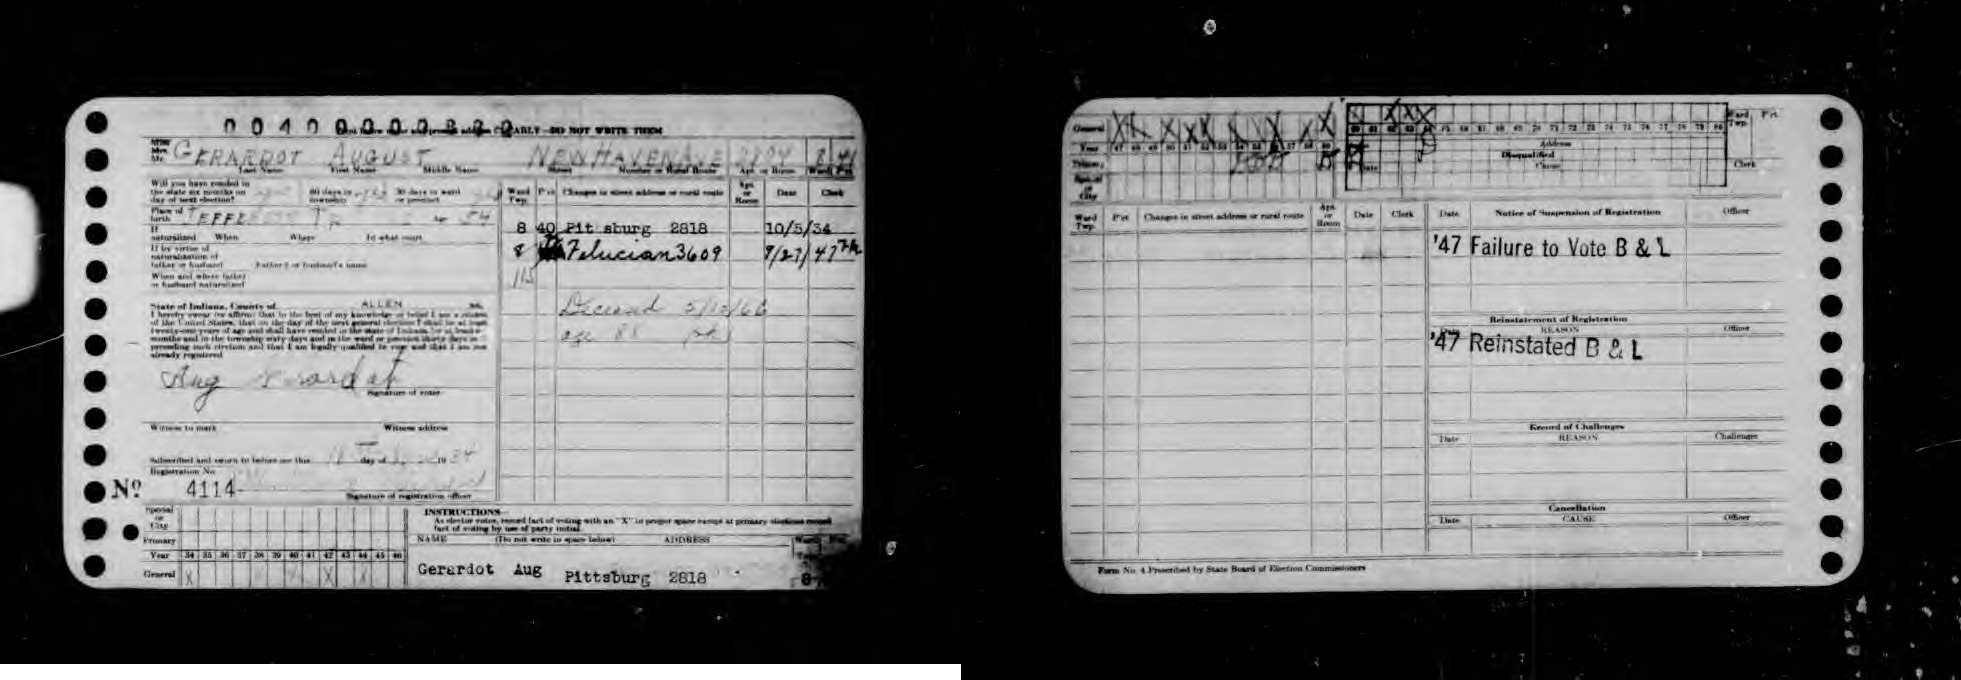 CLEARLY—DO NOT WRITE THEM
Mrs.
Mr. GERARDOT AUGUST NEW HAVEN AVE 8 41
Last Name First Name Middle Name Street Number or Rural Route Apt. or Room Ward Pct.
Will you have resided in
the state six months on 60 days in 30 days in ward
day of next election? township or precinct
Place of
birth JEFFERSON TP Age 54
If
naturalized When Where In what court
If by virtue of
naturalization of
father or husband Father's or husband's name
When and where father
or husband naturalized
State of Indiana, County of ALLEN ss.
I hereby swear (or affirm) that to the best of my knowledge or belief I am a citizen
of the United States, that on the day of the next general election I shall be at least
twenty-one years of age and shall have resided in the state of Indiana for at least six
months and in the township sixty days and in the ward or precinct thirty days
preceding such election and that I am legally qualified to vote and that I am not
already registered
Aug Gerardot
Signature of voter
Witness to mark Witness address
Subscribed and sworn to before me this day of 19 34
Registration No.
No. 4114
Signature of registration officer
Ward Twp. Pct. Changes in street address or rural route Apt. or Room Date Clerk
8 40 Pit sburg 2818 10/5/34
8 Felucian 3609 9/27/47
115
Deceased 3/10/68
age 88
Special
or
City
Primary
Year 34 35 36 37 38 39 40 41 42 43 44 45 46
General X X
INSTRUCTIONS—
As elector votes, record fact of voting with an "X" in proper space except at primary elections record
fact of voting by use of party initial.
NAME (Do not write in space below) ADDRESS
Gerardot Aug Pittsburg 2818 8
General
Year 47 48 49 50 51 52 53 54 55 56 57 58 59 60 61 62 63 64 65 66 67 68 69 70 71 72 73 74 75 76 77 78 79 80
Primary
Special
or
City
Ward Twp. Pct.
Address
Disqualified
Date Cause Clerk
Ward Twp. Pct. Changes in street address or rural route Apt. or Room Date Clerk
Date Notice of Suspension of Registration Officer
'47 Failure to Vote B & L
Reinstatement of Registration
Date REASON Officer
'47 Reinstated B & L
Record of Challenges
Date REASON Challenger
Cancellation
Date CAUSE Officer
Form No. 4 Prescribed by State Board of Election Commissioners